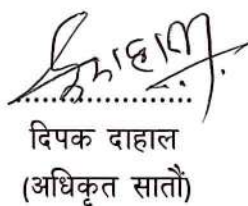 ....................
दिपक दाहाल
(अधिकृत सातौं)